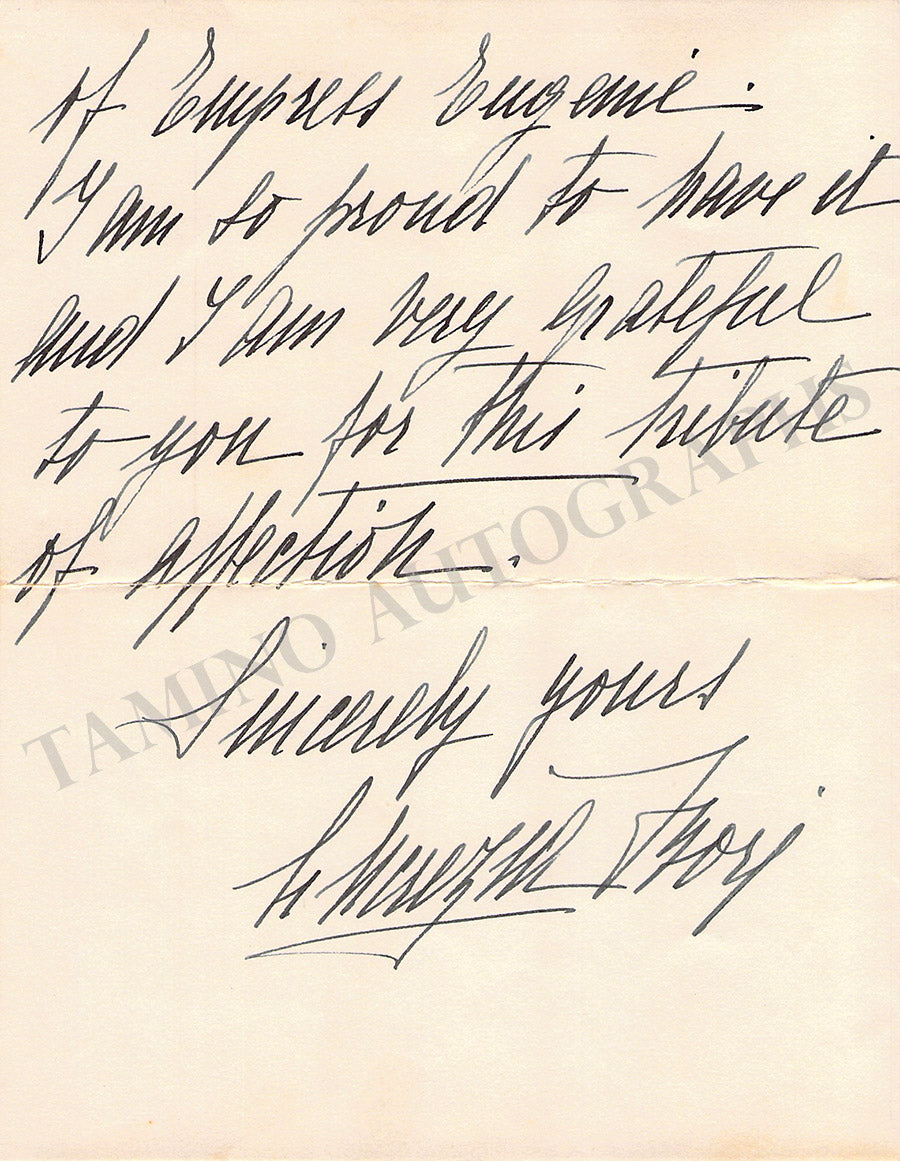 of Empress Eugenie.
I am so proud to have it
and I am very grateful
to you for this tribute
of affection.
Sincerely yours
Lucrezia Bori
TAMINO AUTOGRAPHS